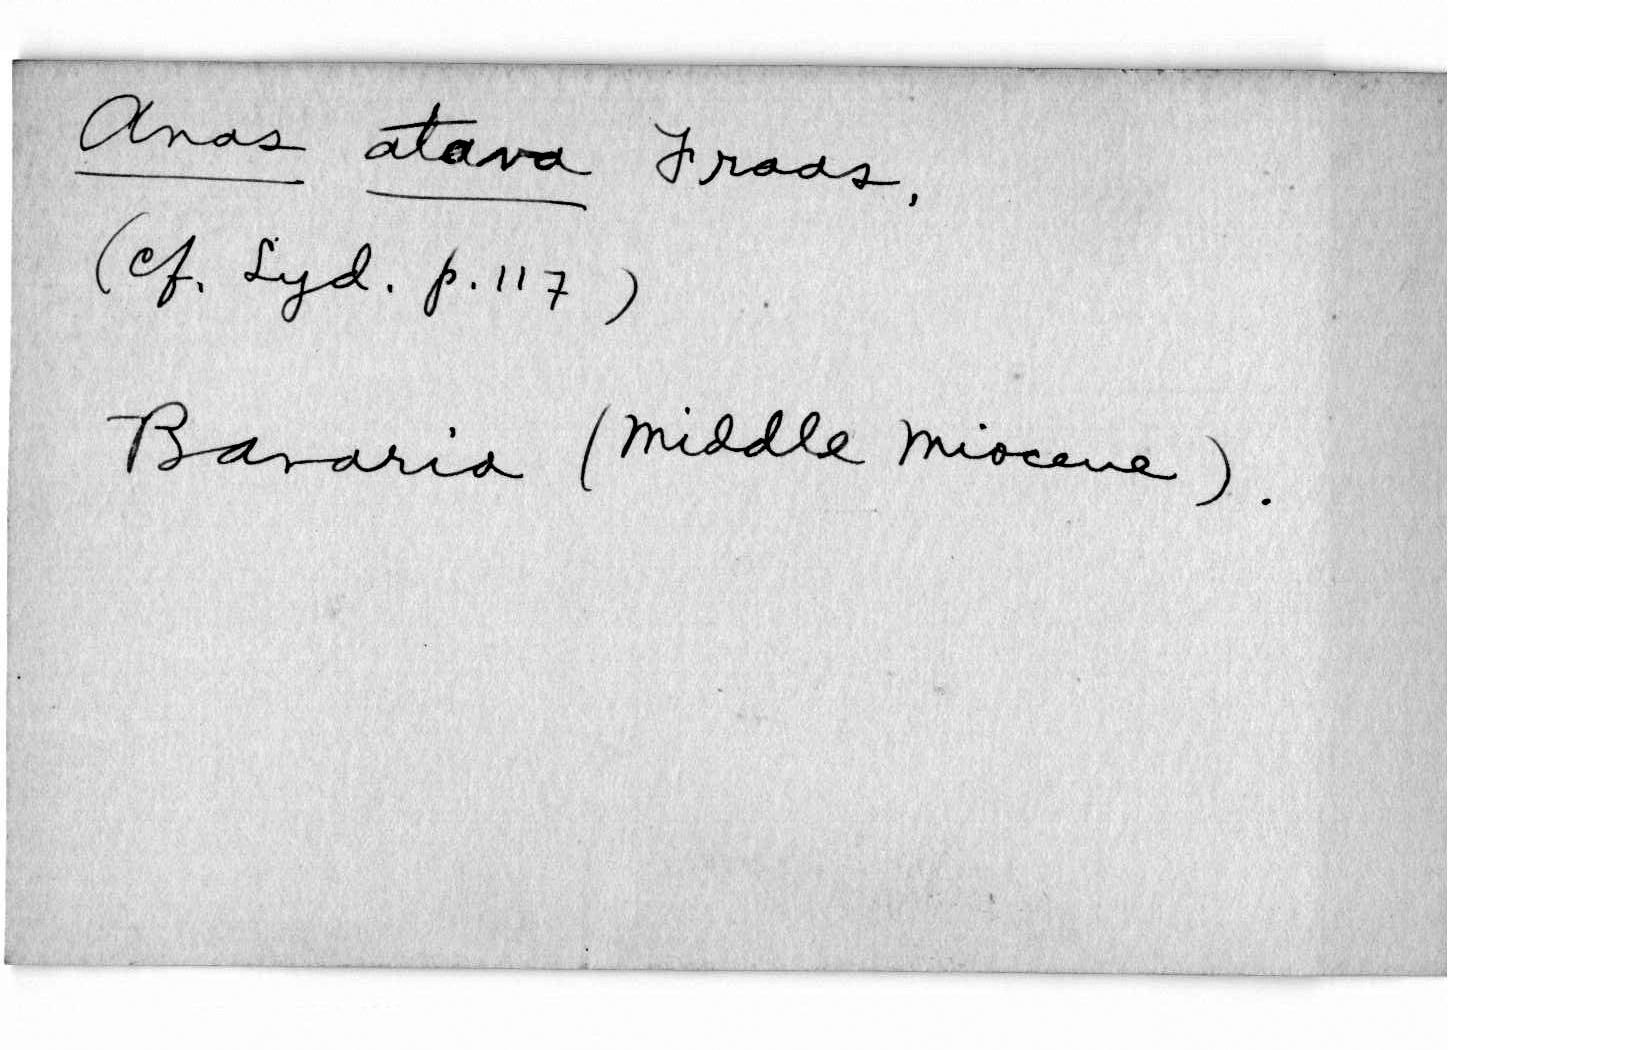 Anas atava Fraas,
(cf. Lyd. p. 117)
Bavaria (Middle Miocene).